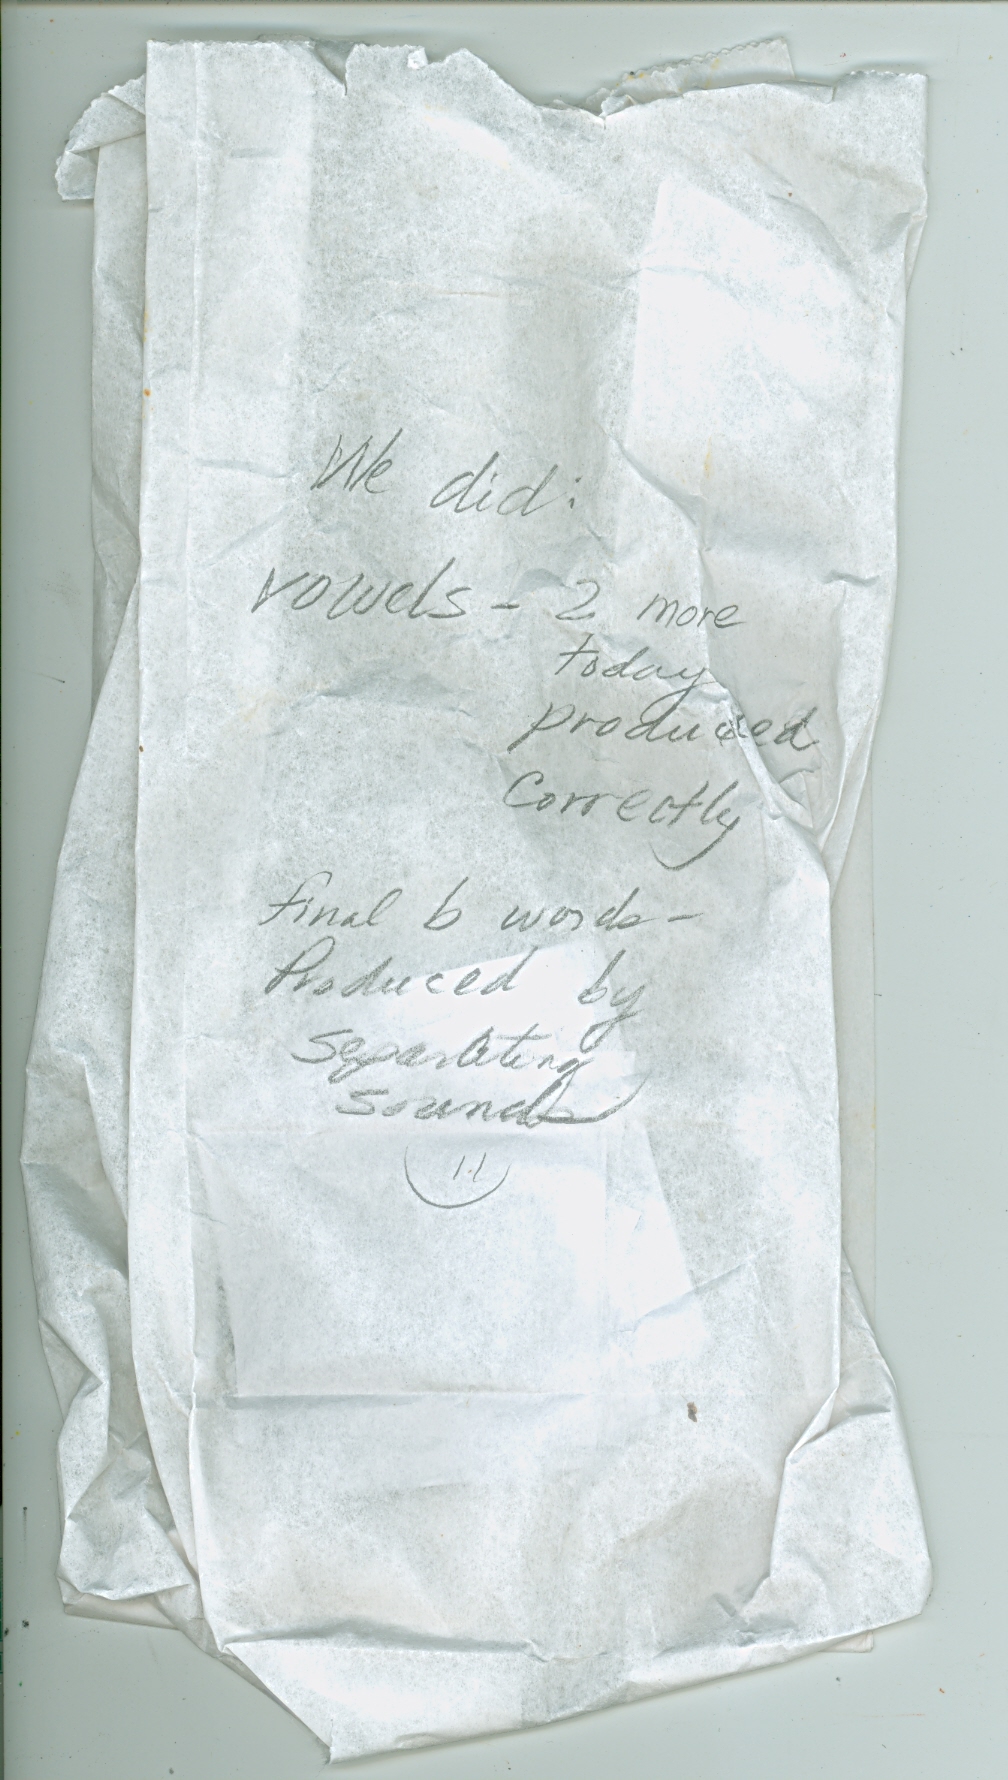 We did:
vowels - 2 more
today
produced
Correctly
final b words -
Produced by
Separating
Sounds